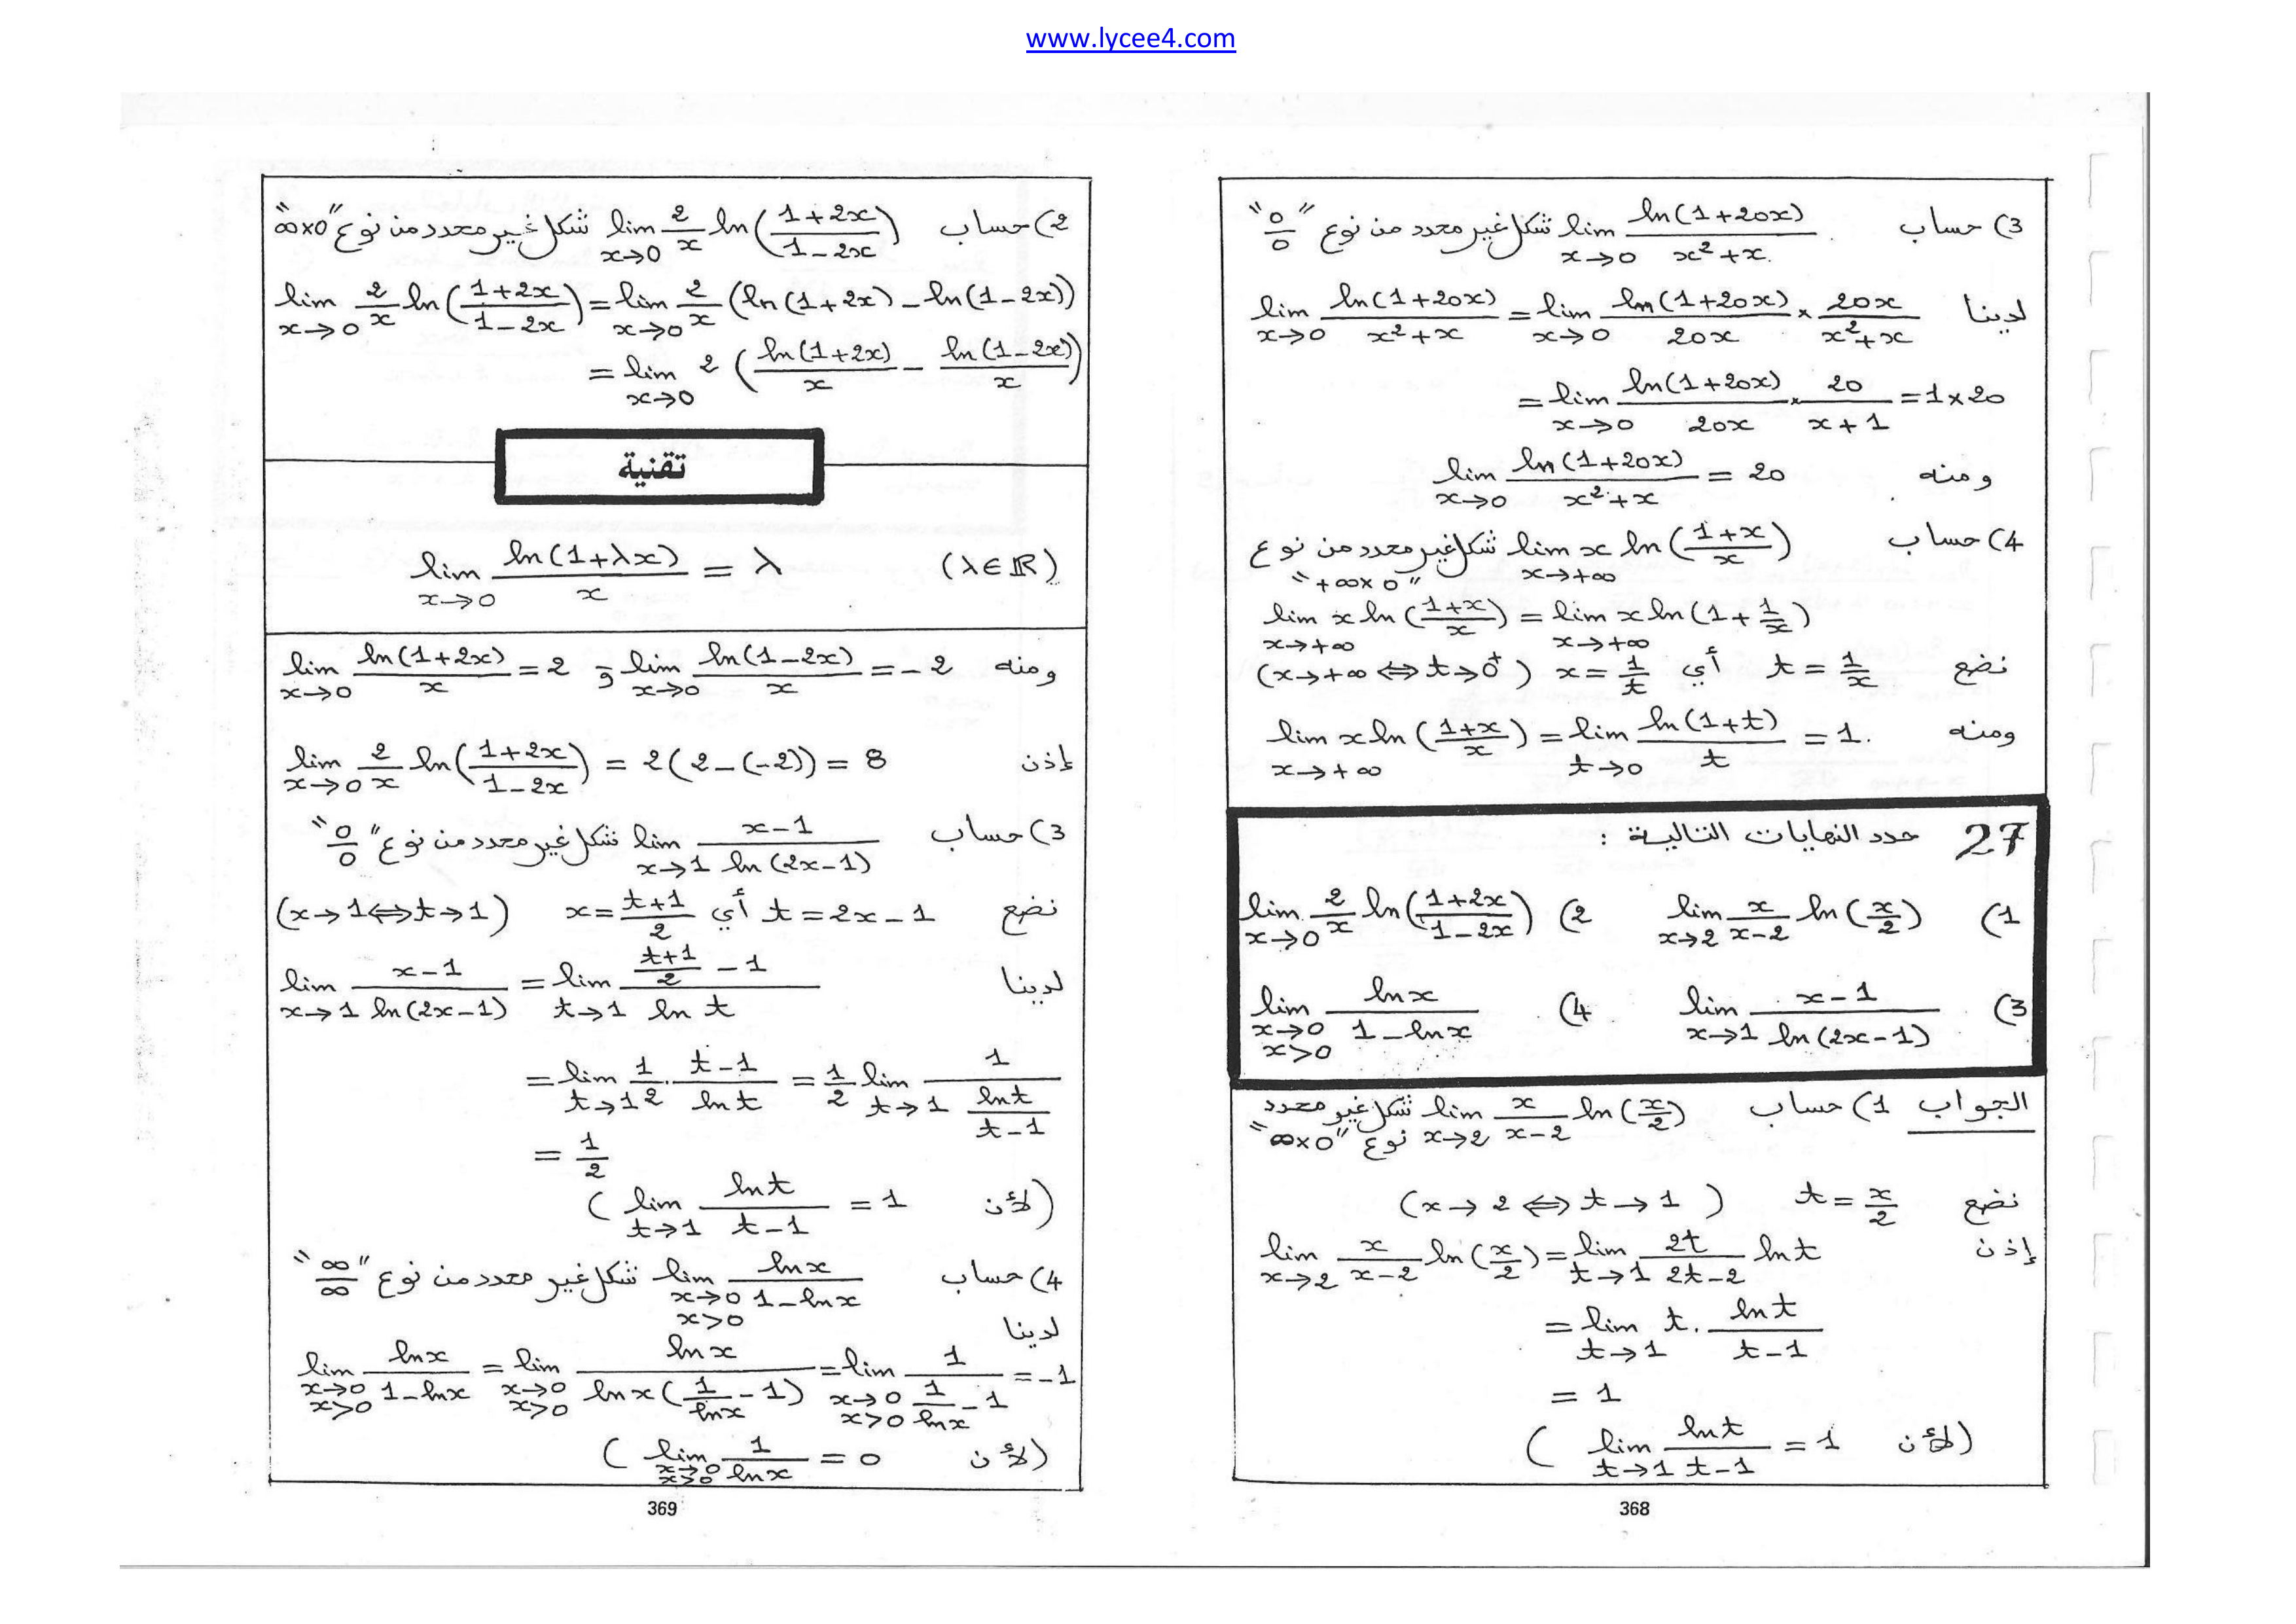 www.lycee4.com
3) حساب lim_{x→0} ln(1+20x)/(x²+x) شكل غير محدد من نوع "0/0"
لدينا lim_{x→0} ln(1+20x)/(x²+x) = lim_{x→0} ln(1+20x)/(20x) × 20x/(x²+x)
= lim_{x→0} ln(1+20x)/(20x) × 20/(x+1) = 1×20
ومنه lim_{x→0} ln(1+20x)/(x²+x) = 20
4) حساب lim_{x→+∞} x ln((1+x)/x) شكل غير محدد من نوع
"+∞×0"
lim_{x→+∞} x ln((1+x)/x) = lim_{x→+∞} x ln(1+1/x)
نضع t = 1/x أي x = 1/t (x→+∞ ⇔ t→0⁺)
ومنه lim_{x→+∞} x ln((1+x)/x) = lim_{t→0} ln(1+t)/t = 1.
27 حدد النهايات التالية :
1) lim_{x→2} x/(x-2) ln(x/2) 2) lim_{x→0} 2/x ln((1+2x)/(1-2x))
3) lim_{x→1} (x-1)/ln(2x-1) 4) lim_{x→0, x>0} lnx/(1-lnx)
الجواب 1) حساب lim_{x→2} x/(x-2) ln(x/2) شكل غير محدد
نوع "∞×0"
نضع t = x/2 (x→2 ⇔ t→1)
إذن lim_{x→2} x/(x-2) ln(x/2) = lim_{t→1} 2t/(2t-2) lnt
= lim_{t→1} t. lnt/(t-1)
= 1
(لأن lim_{t→1} lnt/(t-1) = 1)
368
2) حساب lim_{x→0} 2/x ln((1+2x)/(1-2x)) شكل غير محدد من نوع "∞×0"
lim_{x→0} 2/x ln((1+2x)/(1-2x)) = lim_{x→0} 2/x (ln(1+2x) - ln(1-2x))
= lim_{x→0} 2 (ln(1+2x)/x - ln(1-2x)/x)
تقنية
lim_{x→0} ln(1+λx)/x = λ (λ∈ℝ)
ومنه lim_{x→0} ln(1+2x)/x = 2 و lim_{x→0} ln(1-2x)/x = -2
إذن lim_{x→0} 2/x ln((1+2x)/(1-2x)) = 2(2-(-2)) = 8
3) حساب lim_{x→1} (x-1)/ln(2x-1) شكل غير محدد من نوع "0/0"
نضع t = 2x-1 أي x = (t+1)/2 (x→1 ⇔ t→1)
لدينا lim_{x→1} (x-1)/ln(2x-1) = lim_{t→1} ((t+1)/2 - 1)/ln t
= lim_{t→1} 1/2 . (t-1)/lnt = 1/2 lim_{t→1} 1/(lnt/(t-1))
= 1/2
(لأن lim_{t→1} lnt/(t-1) = 1)
4) حساب lim_{x→0, x>0} lnx/(1-lnx) شكل غير محدد من نوع "∞/∞"
لدينا
lim_{x→0, x>0} lnx/(1-lnx) = lim_{x→0, x>0} lnx/(lnx(1/lnx - 1)) = lim_{x→0, x>0} 1/(1/lnx - 1) = -1
(لأن lim_{x→0, x>0} 1/lnx = 0)
369